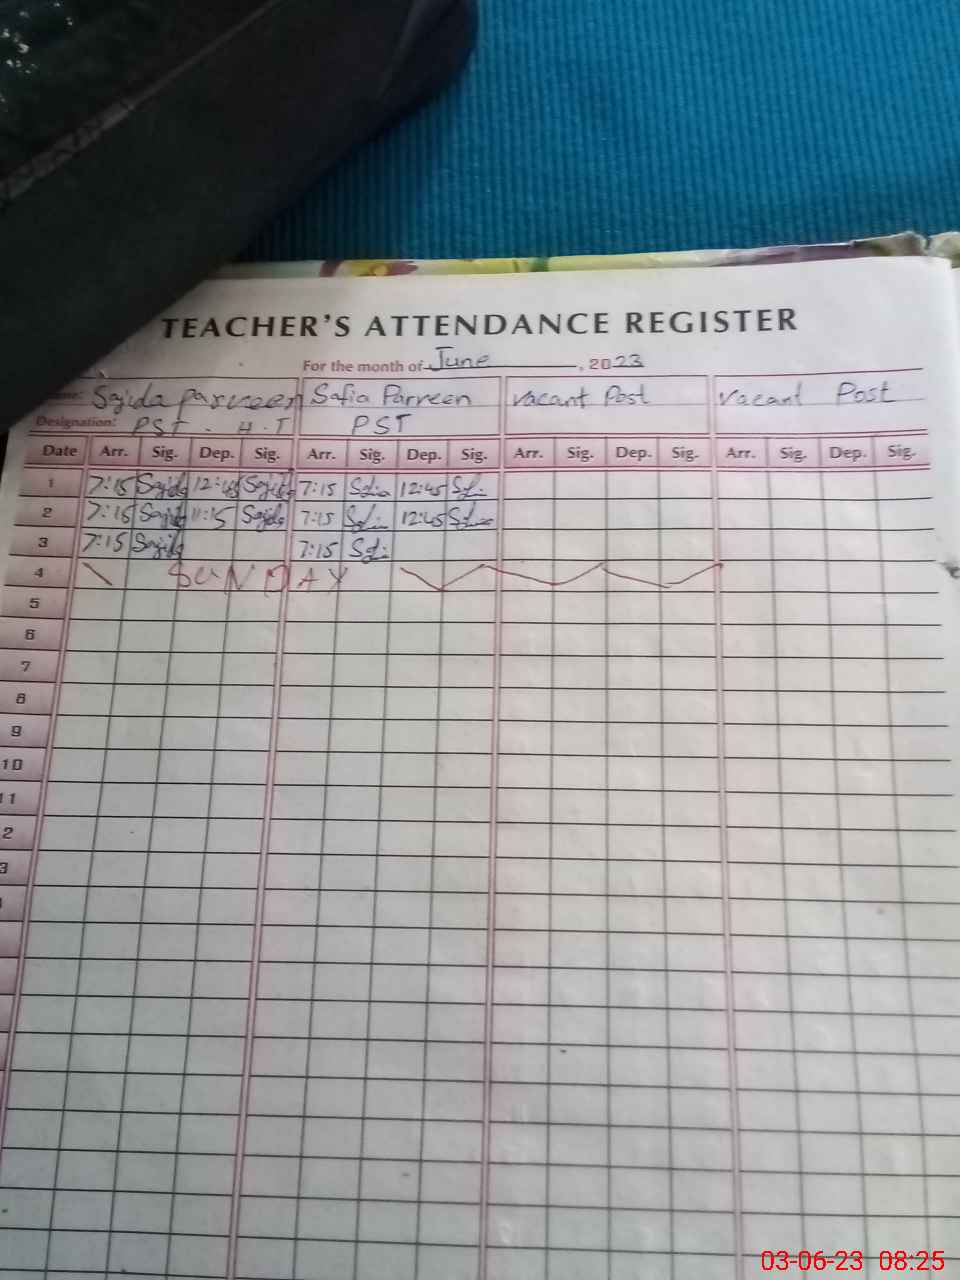 TEACHER'S ATTENDANCE REGISTER
For the month of June, 2023
Sajida parveen Safia Parveen vacant Post vacant Post
Designation: PST. H.T PST
Date Arr. Sig. Dep. Sig. Arr. Sig. Dep. Sig. Arr. Sig. Dep. Sig. Arr. Sig. Dep. Sig.
1 7:15 Sajida 12:45 Sajida 7:15 Safia 12:45 Safia
2 7:15 Sajida 11:15 Sajida 7:15 Safia 12:45 Safia
3 7:15 Sajida 7:15 Safia
4 SUNDAY
5
6
7
8
9
10
11
2
3
03-06-23 08:25